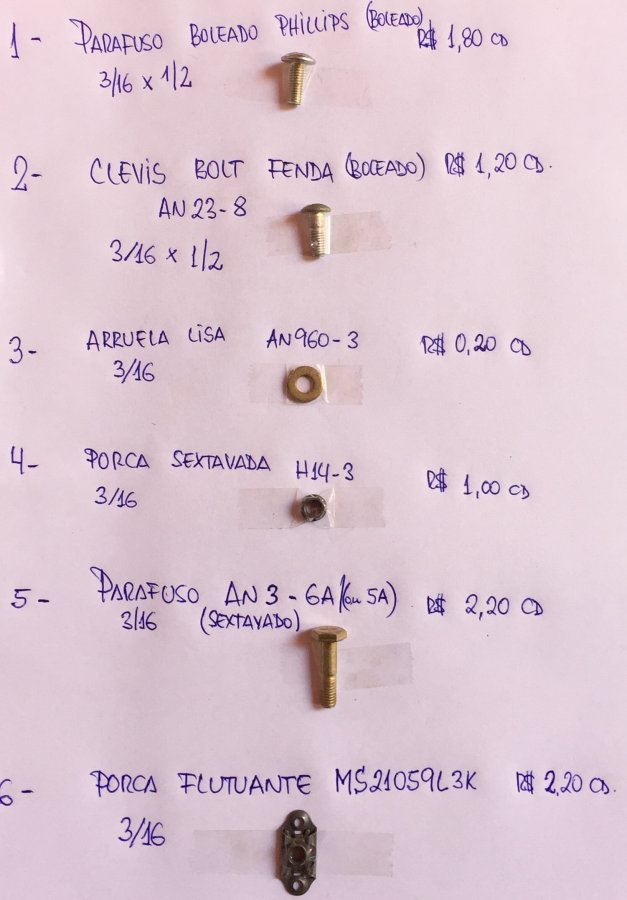 1 - PARAFUSO BOLEADO PHILLIPS (BOLEADO) R$ 1,80 CD
3/16 x 1/2
2- CLEVIS BOLT FENDA (BOLEADO) R$ 1,20 CD.
AN 23-8
3/16 x 1/2
3- ARRUELA LISA AN960-3 R$ 0,20 CD
3/16
4- PORCA SEXTAVADA H14-3 R$ 1,00 CD
3/16
5 - PARAFUSO AN 3 - 6A (ou 5A) R$ 2,20 CD
3/16 (SEXTAVADO)
6 - PORCA FLUTUANTE MS21059L3K R$ 2,20 CD.
3/16